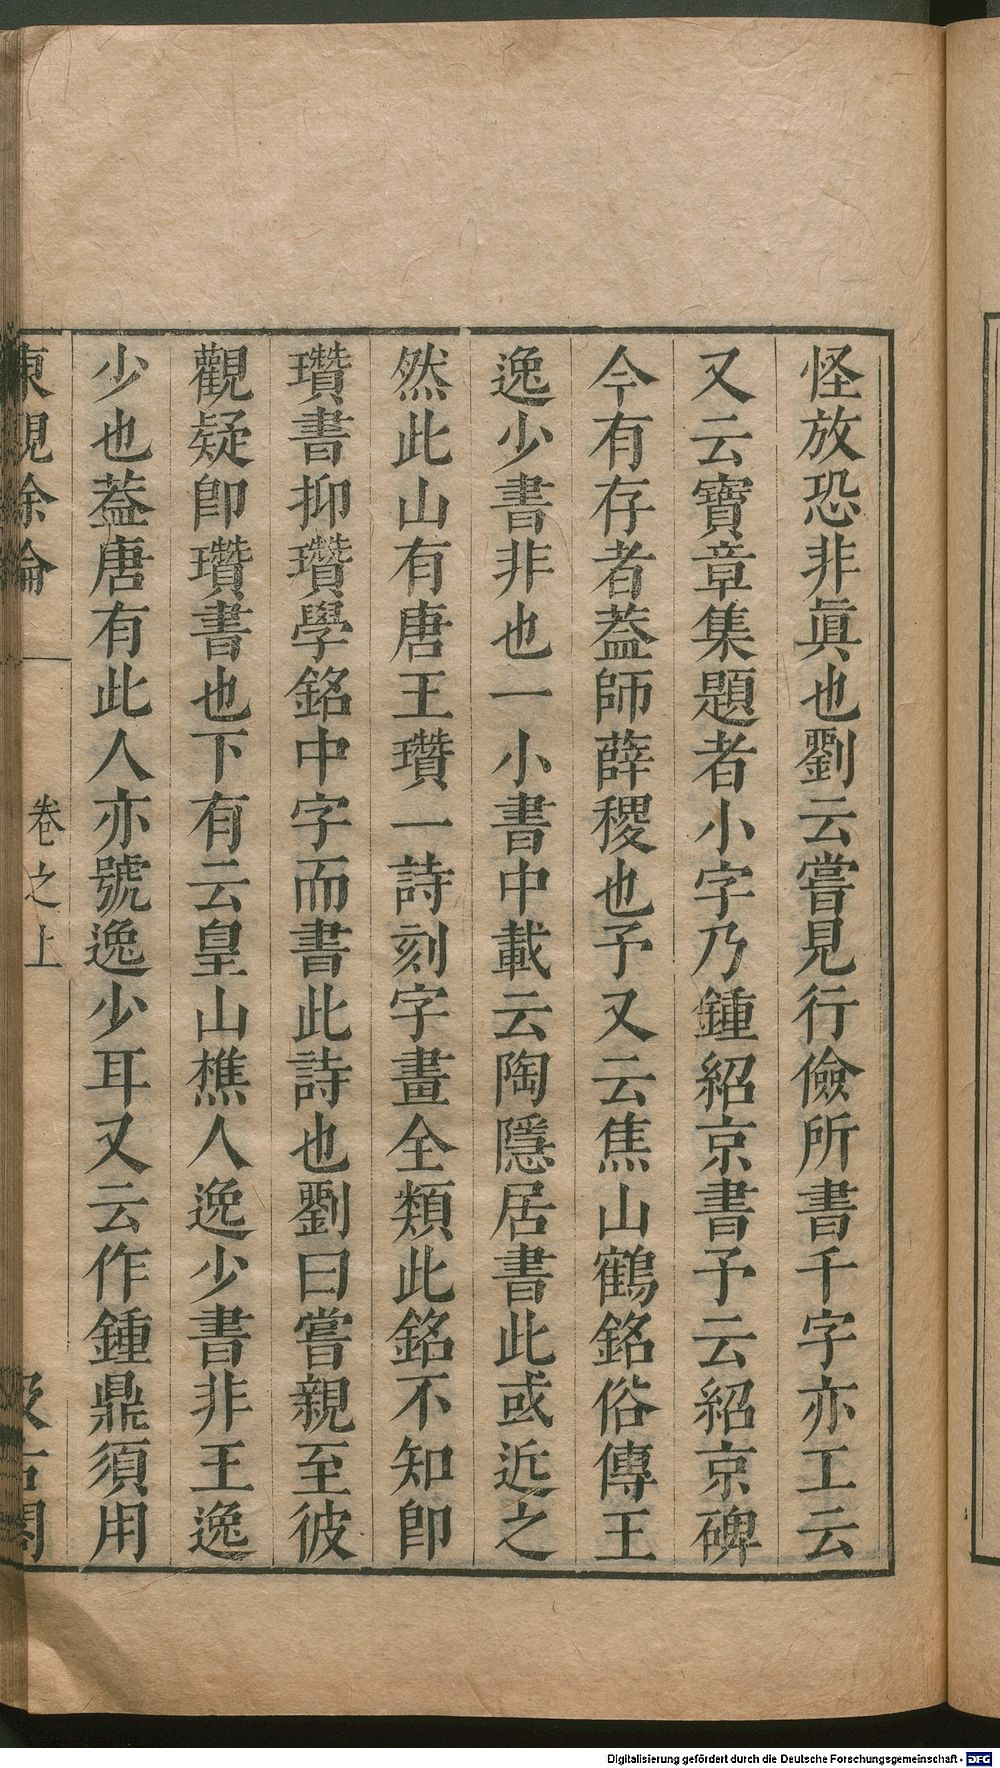 怪放恐非眞也劉云嘗見行儉所書千字亦工云
又云寶章集題者小字乃鍾紹京書予云紹京碑
今有存者葢師薛稷也予又云焦山鶴銘俗傳王
逸少書非也一小書中載云陶隱居書此或近之
然此山有唐王瓚一詩刻字畫全類此銘不知即
瓚書抑瓚學銘中字而書此詩也劉曰嘗親至彼
觀疑卽瓚書也下有云皇山樵人逸少書非王逸
少也葢唐有此人亦號逸少耳又云作鍾鼎須用
東觀餘論 卷之上 汲古閣
Digitalisierung gefördert durch die Deutsche Forschungsgemeinschaft - DFG